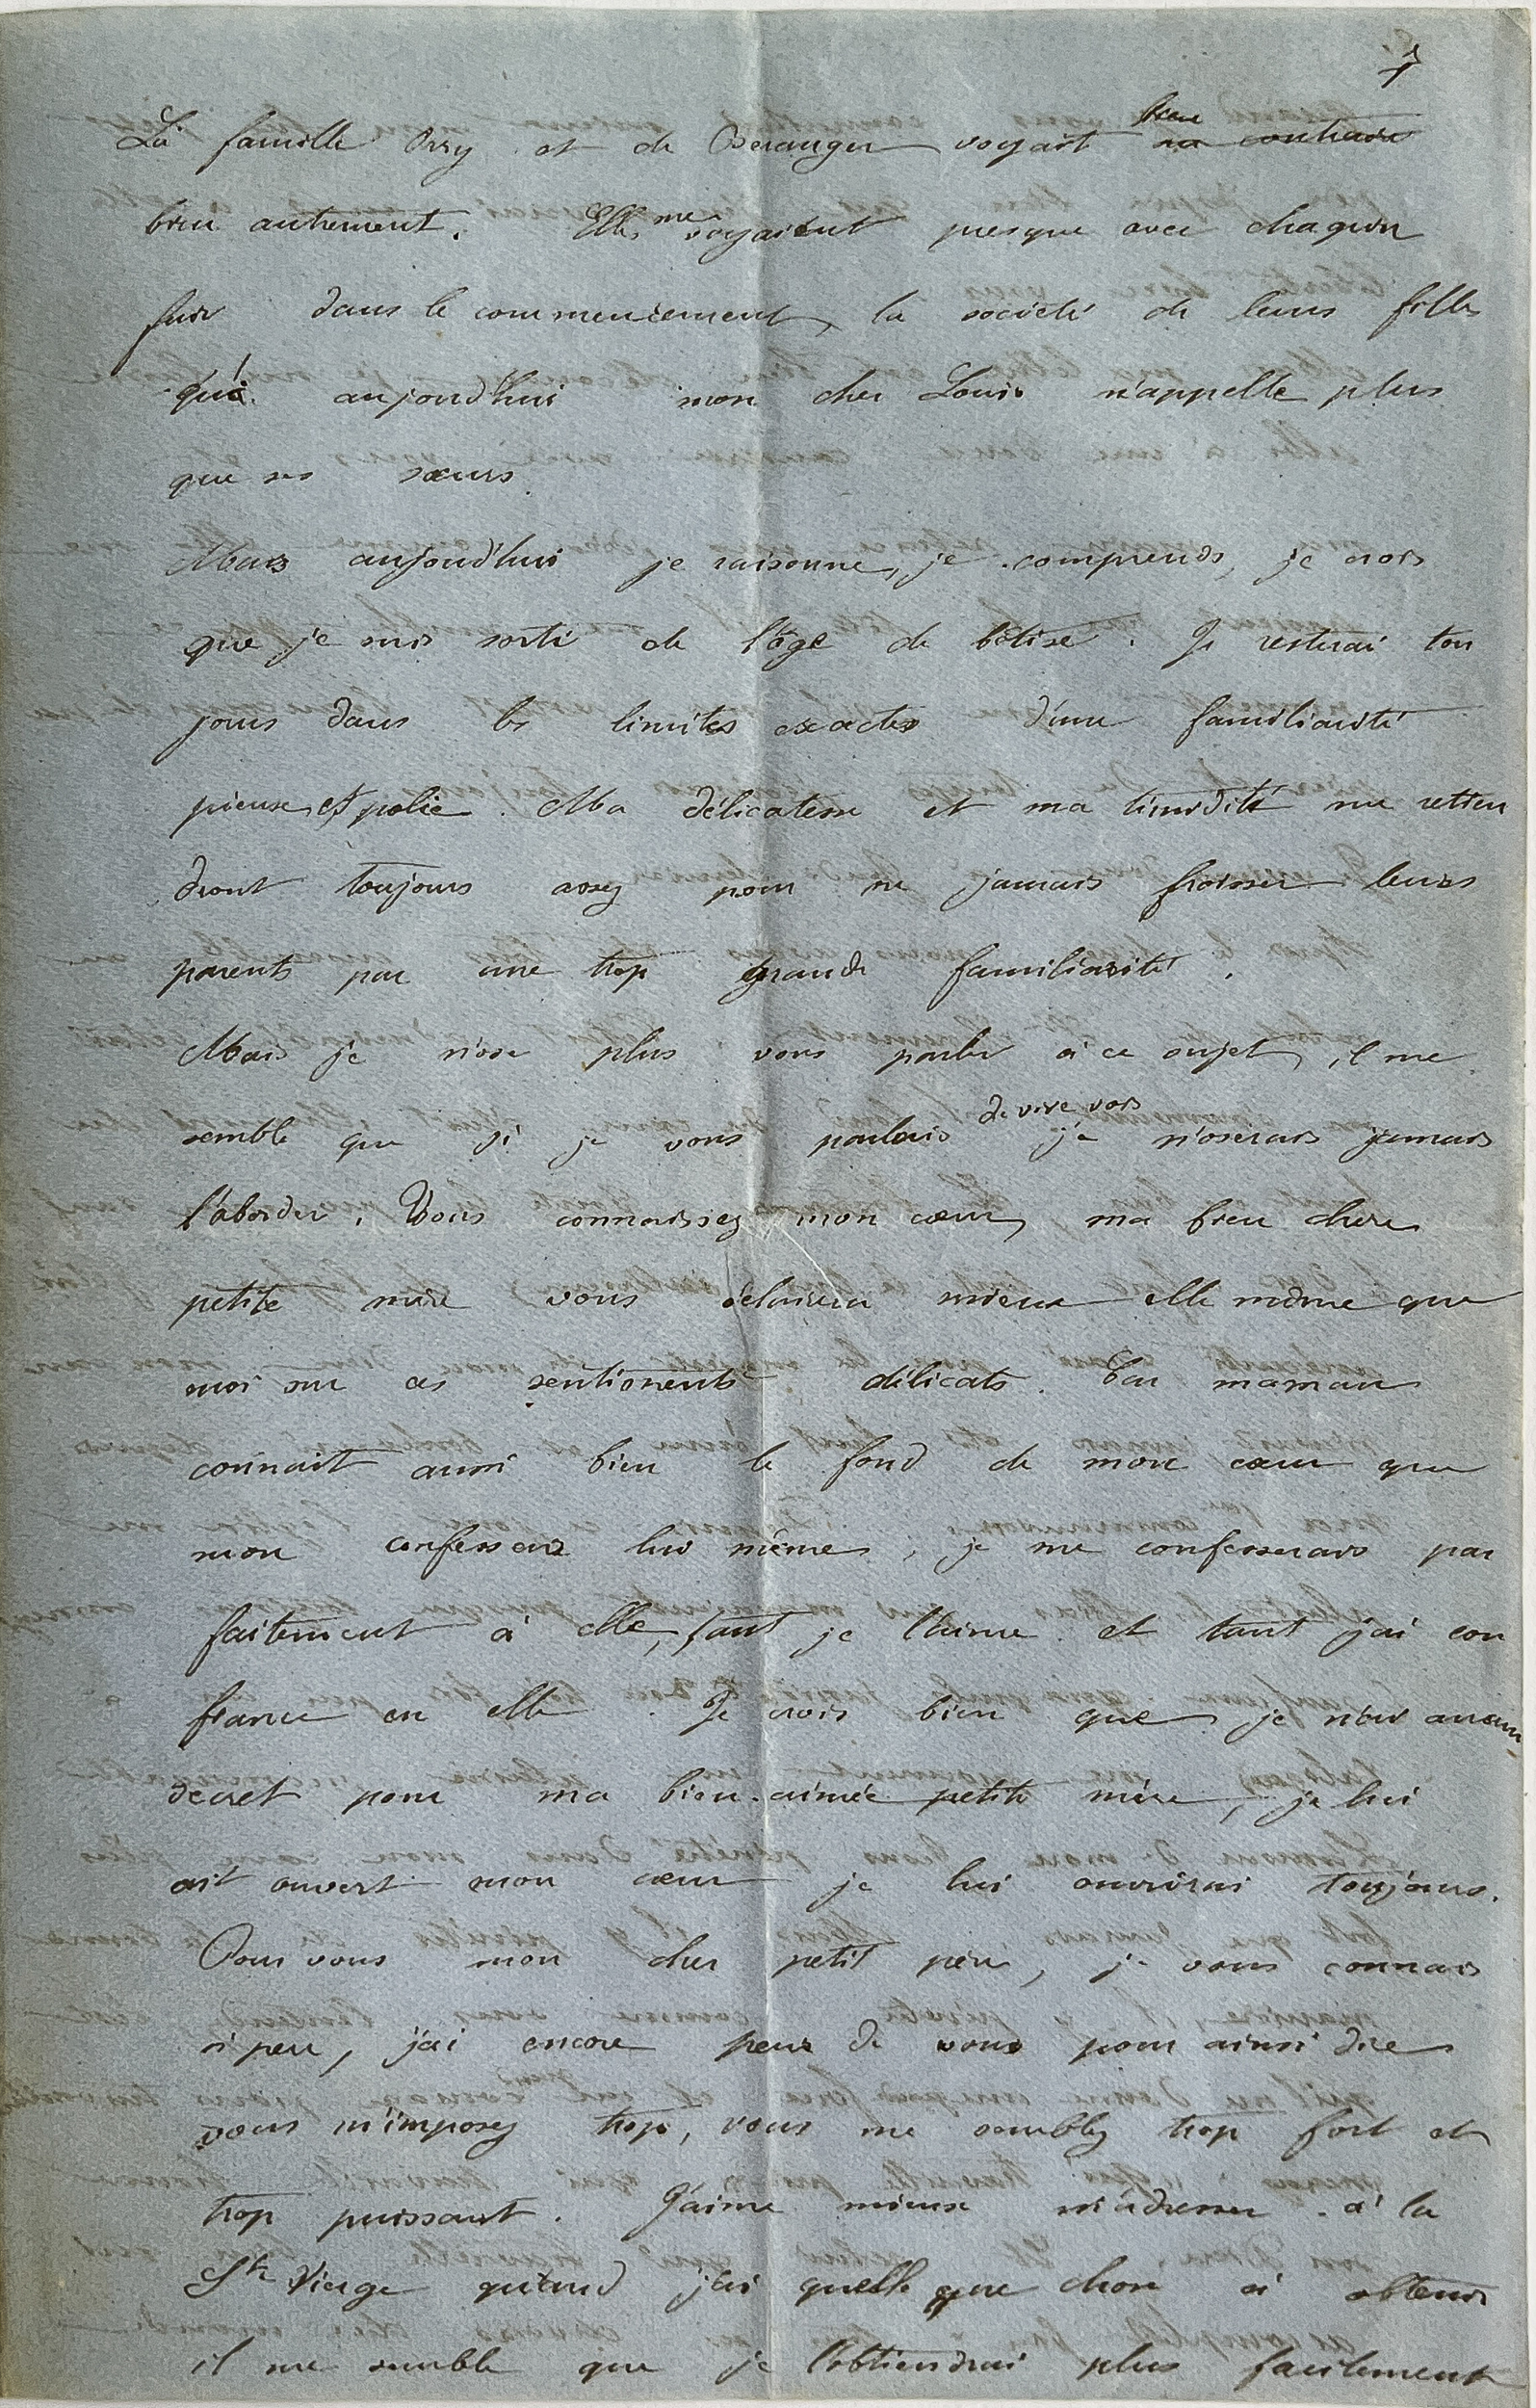 La famille Orry et de Béranger voyait bien ~~au contraire~~
bien autrement. Elles me voyaient presque avec chagrin
fuir dans le commencement, la société de leurs filles
qu' aujourd'hui mon cher Louis n'appelle plus
que ses sœurs.
Mais aujourd'hui je raisonne, je comprends, je crois
que je suis sorti de l'âge de bêtise. Je resterai tou
jours dans les limites exactes d'une familiarité
pieuse et polie. Ma délicatesse et ma timidité me retien
dront toujours assez pour ne jamais froisser leurs
parents par une trop grande familiarité.
Mais je n'ose plus vous parler à ce sujet, il me
semble que si je vous parlais de vive voix je n'oserais jamais
l'aborder. Vous connaissez mon cœur, ma bien chère
petite mère vous éclairera mieux elle même que
moi sur ces sentiments délicats. Car maman
connait aussi bien le fond de mon cœur que
mon confesseur lui même, je me confesserais par
faitement à elle, tant je l'aime et tant j'ai con
fiance en elle. Je crois bien que je n'ai aucun
secret pour ma bien-aimée petite mère, je lui
ait ouvert mon cœur je lui ouvrirai toujours.
Pour vous mon cher petit père, je vous connais
si peu, j'ai encore peur de vous pour ainsi dire
vous m'imposez trop, vous me semblez trop fort et
trop puissant. J'aime mieux m'adresser à la
Ste Vierge quand j'ai quelle que chose à obtenir
il me semble que je l'obtiendrai plus facilement